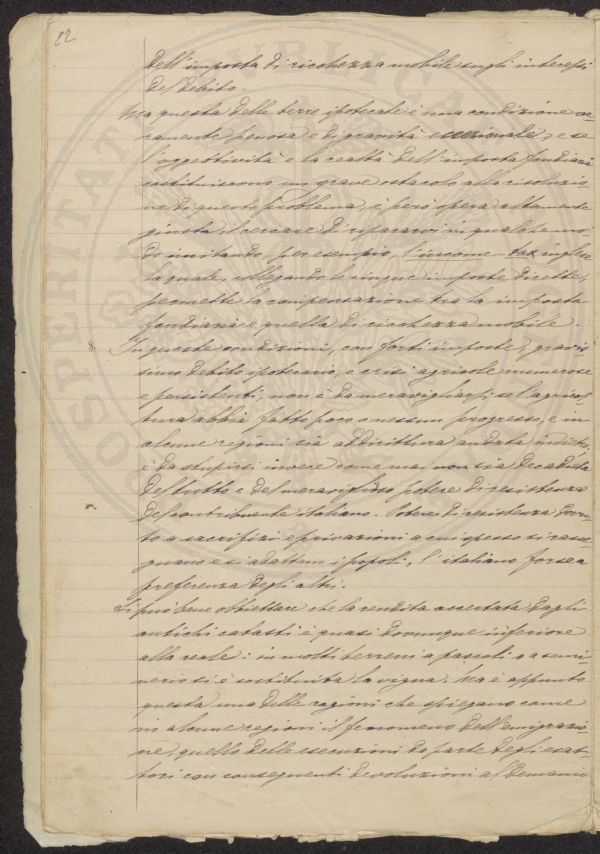 22
dell'imposta di ricchezza mobile sugli interessi
del debito.
Ma questa delle terre ipotecate è una condizione ve-
ramente penosa e di gravità eccezionale, e se
l'oggettività e la realtà dell'imposta fondiaria
costituiscono un grave ostacolo alla risoluzio-
ne di questo problema, è però opera altamente
giusta il cercare di ripararvi in qualche mo-
do imitando, per esempio, l'income-tax inglese
la quale, collegando le cinque imposte dirette,
permette la compensazione tra la imposta
fondiaria e quella di ricchezza mobile.
8. In queste condizioni, con forti imposte, gravis-
simo debito ipotecario, e crisi agricole numerose
e persistenti, non è da meravigliarsi se l'agricol-
tura abbia fatto poco o nessun progresso, e in
alcune regioni sia addirittura andata indietro,
è da stupirsi invece come mai non sia decaduta
del tutto e del meraviglioso potere di resistenza
del contribuente italiano. Potere di resistenza dovu-
to a sacrifizi e privazioni a cui spesso si rasse-
gnano e si adattano i popoli, l'italiano forse a
preferenza degli altri.
Si può bene obbiettare che la rendita accertata dagli
antichi catasti è quasi dovunque inferiore
alla reale: in molti terreni a pascoli o a semi-
nerio si è sostituita la vigna. Ma è appunto
questa una delle ragioni che spiegano come
in alcune regioni il fenomeno dell'emigrazio-
ne, quello delle esecuzioni da parte degli esat-
tori con conseguenti devoluzioni al demanio
PROSPERITATI PVBLICAE